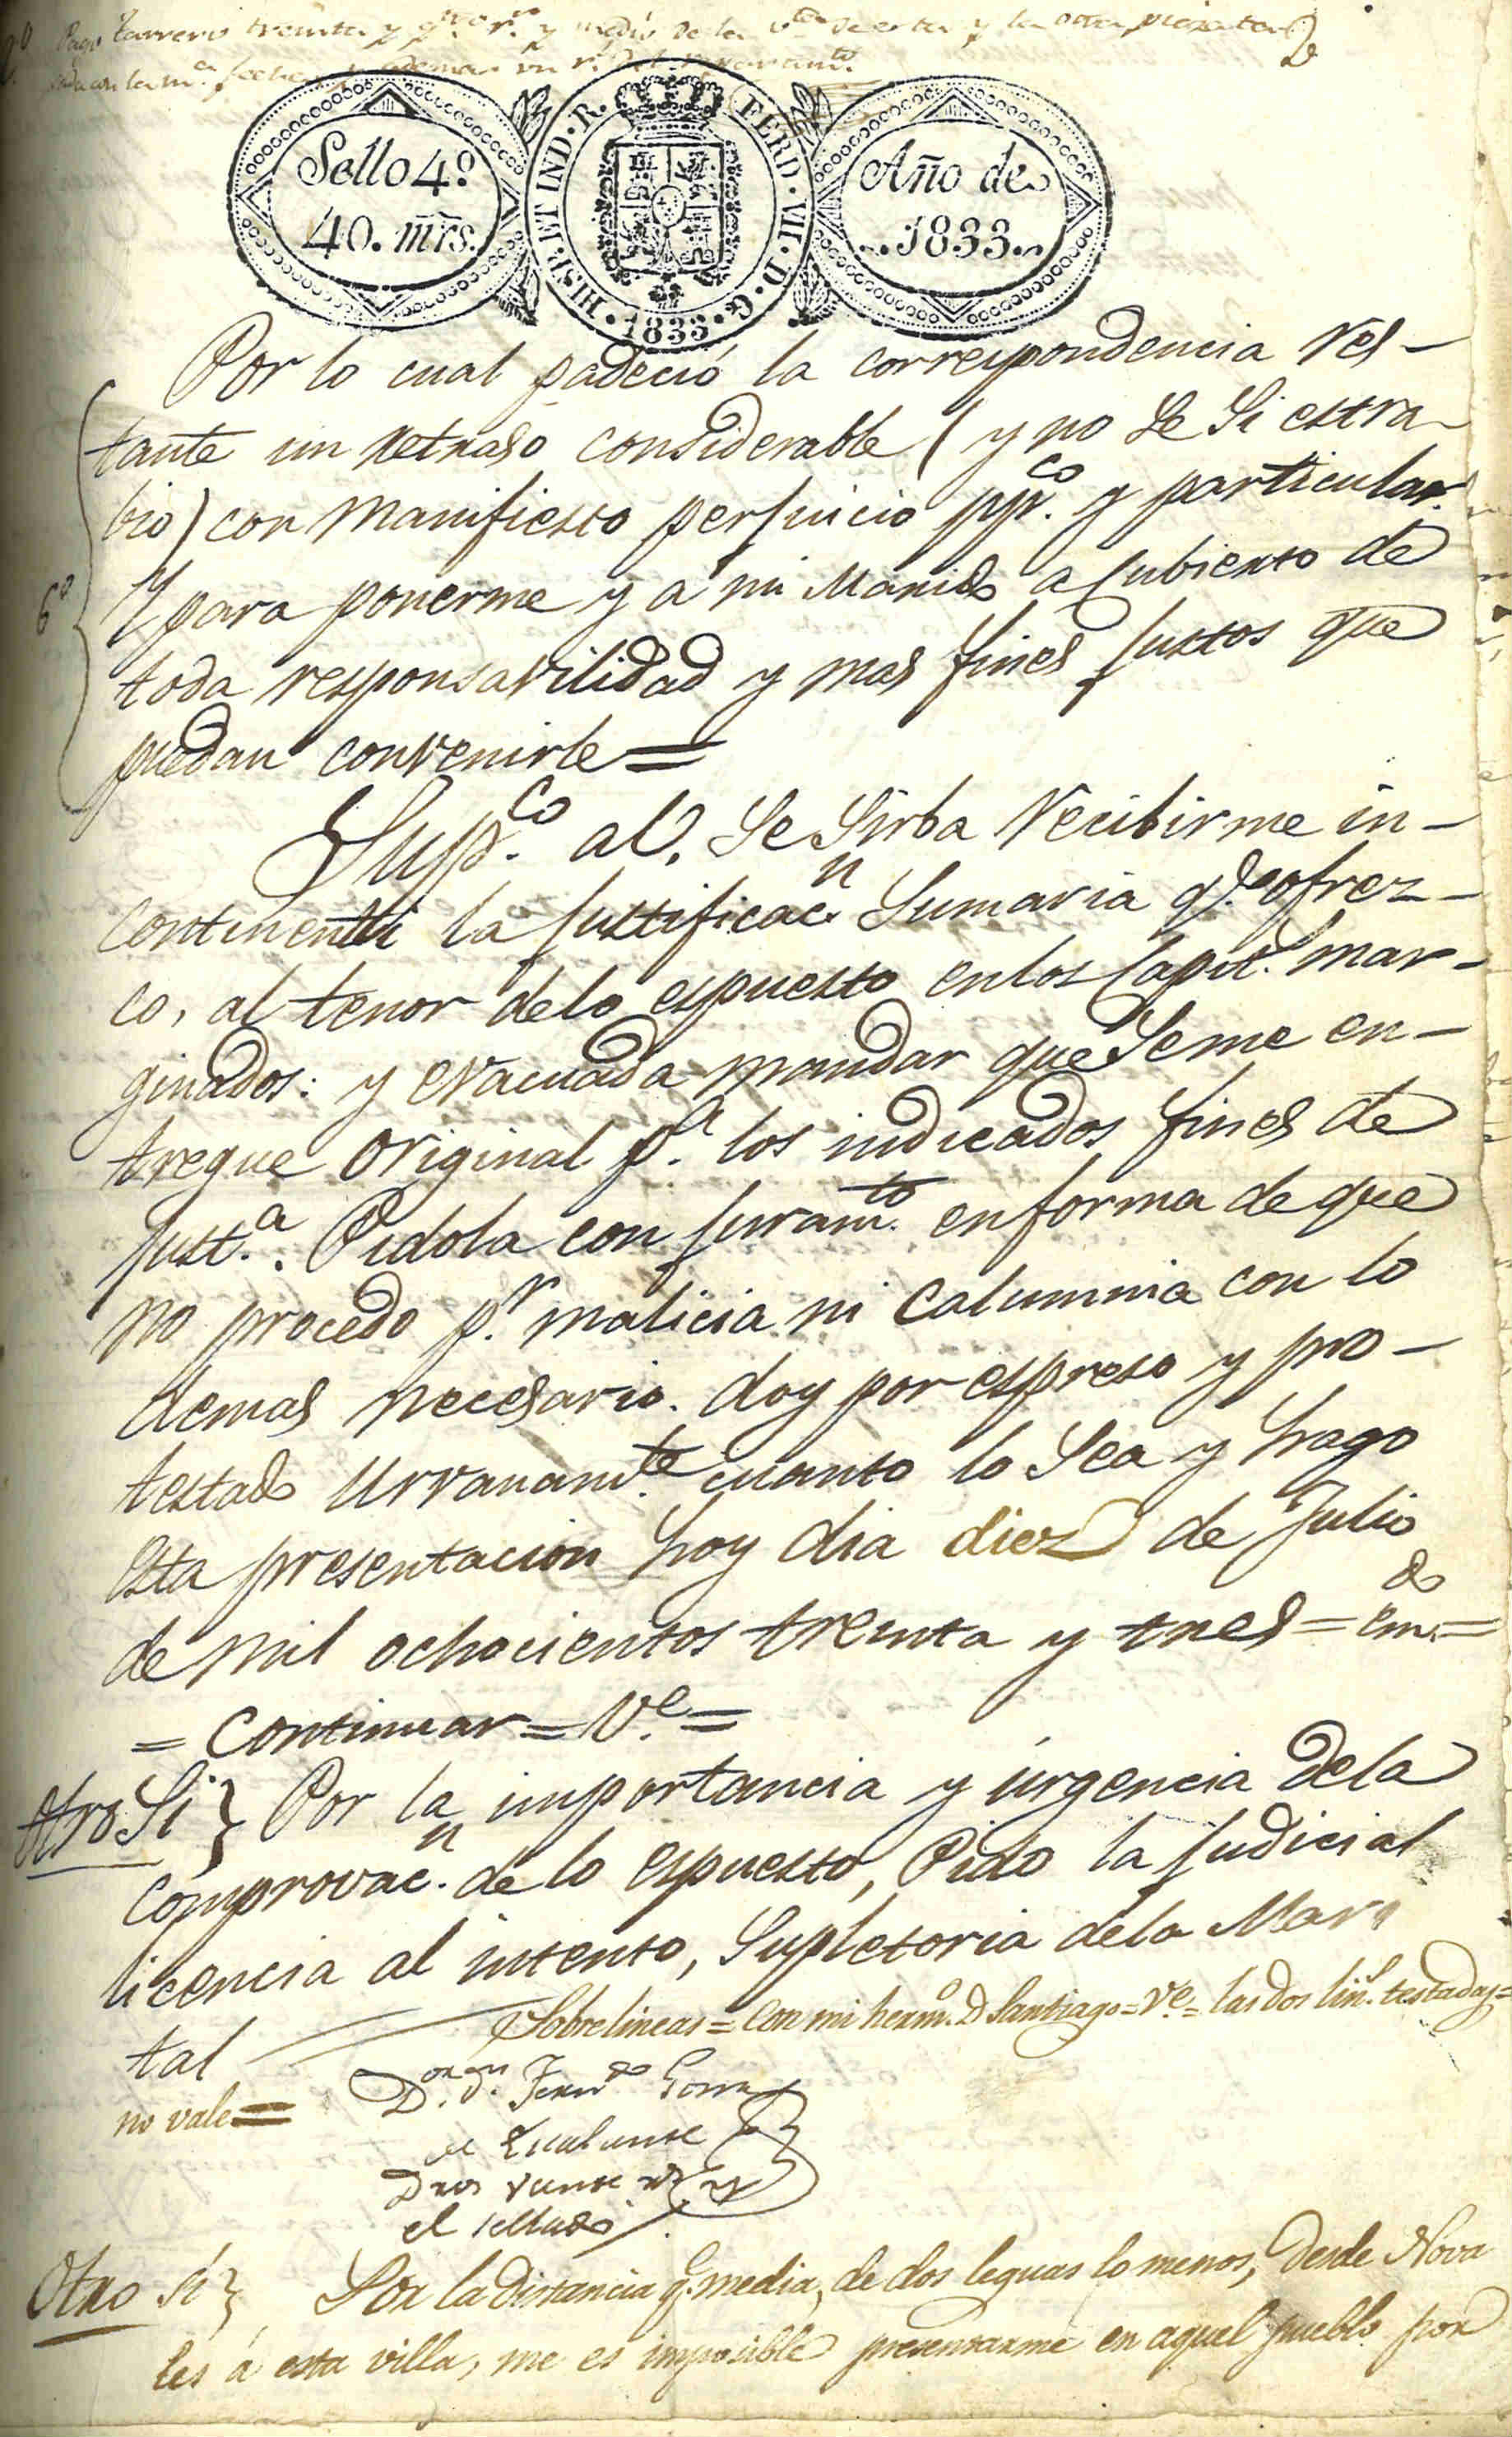 Pago Carrero treinta y q.tro r.s y medio de la v.ta de esta y la otra presenta
da con la m.a fecha y además un r.l del
Sello 4.º
40. mrs.
HISP. ET IND. R. FERD. VII. D. G.
1833
Año de
1833
Por lo cual padeció la correspondencia res-
tante un retraso considerable (y no se si estra-
bio) con manifiesto perjuicio pp.co y particular.
6º
Y para ponerme y a mi Marido a cubierto de
toda responsavilidad y mas fines justos que
puedan convenirle=
Sup.co a V. se sirba recibirme in-
continenti la justificac.n sumaria q.e ofrez-
co, al tenor de lo espuesto en los capit.s mar-
ginados: y evacuada mandar que se me en-
tregue original p.a los indicados fines de
just.a. Pidola con juram.to en forma de que
no procedo p.r malicia ni calumnia con lo
demas necesario. doy por espreso y pro-
testado Urvanam.te cuanto lo sea y hago
esta presentacion hoy dia diez de Julio
de mil ochocientos treinta y tres = em.do =
= Continuar = V.e =
Otro Si } Por la importancia y urgencia de la
comprovac.n de lo espuesto, Pido la judicial
licencia al intento, supletoria de la Mari
tal
Sobrelineas = Con mi herm.o D Santiago = V.e = las dos lin.s testadas =
no vale =
D.or d.n Fern.do Gomz
de Escalante
Dros veinte rs
el sellado
Otro si } Por la distancia q.e media, de dos leguas lo menos, desde Nova
les á esta villa, me es imposible presentarme en aquel pueblo por